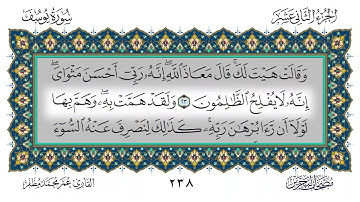 الجزء الثاني عشر
سورة يوسف
وَقَالَتْ هَيْتَ لَكَ ۚ قَالَ مَعَاذَ اللَّهِ ۖ إِنَّهُ رَبِّي أَحْسَنَ مَثْوَايَ ۖ
إِنَّهُ لَا يُفْلِحُ الظَّالِمُونَ ٢٣ وَلَقَدْ هَمَّتْ بِهِ ۖ وَهَمَّ بِهَا
لَوْلَا أَن رَّءَا بُرْهَانَ رَبِّهِ ۚ كَذَٰلِكَ لِنَصْرِفَ عَنْهُ السُّوءَ
٢٣٨